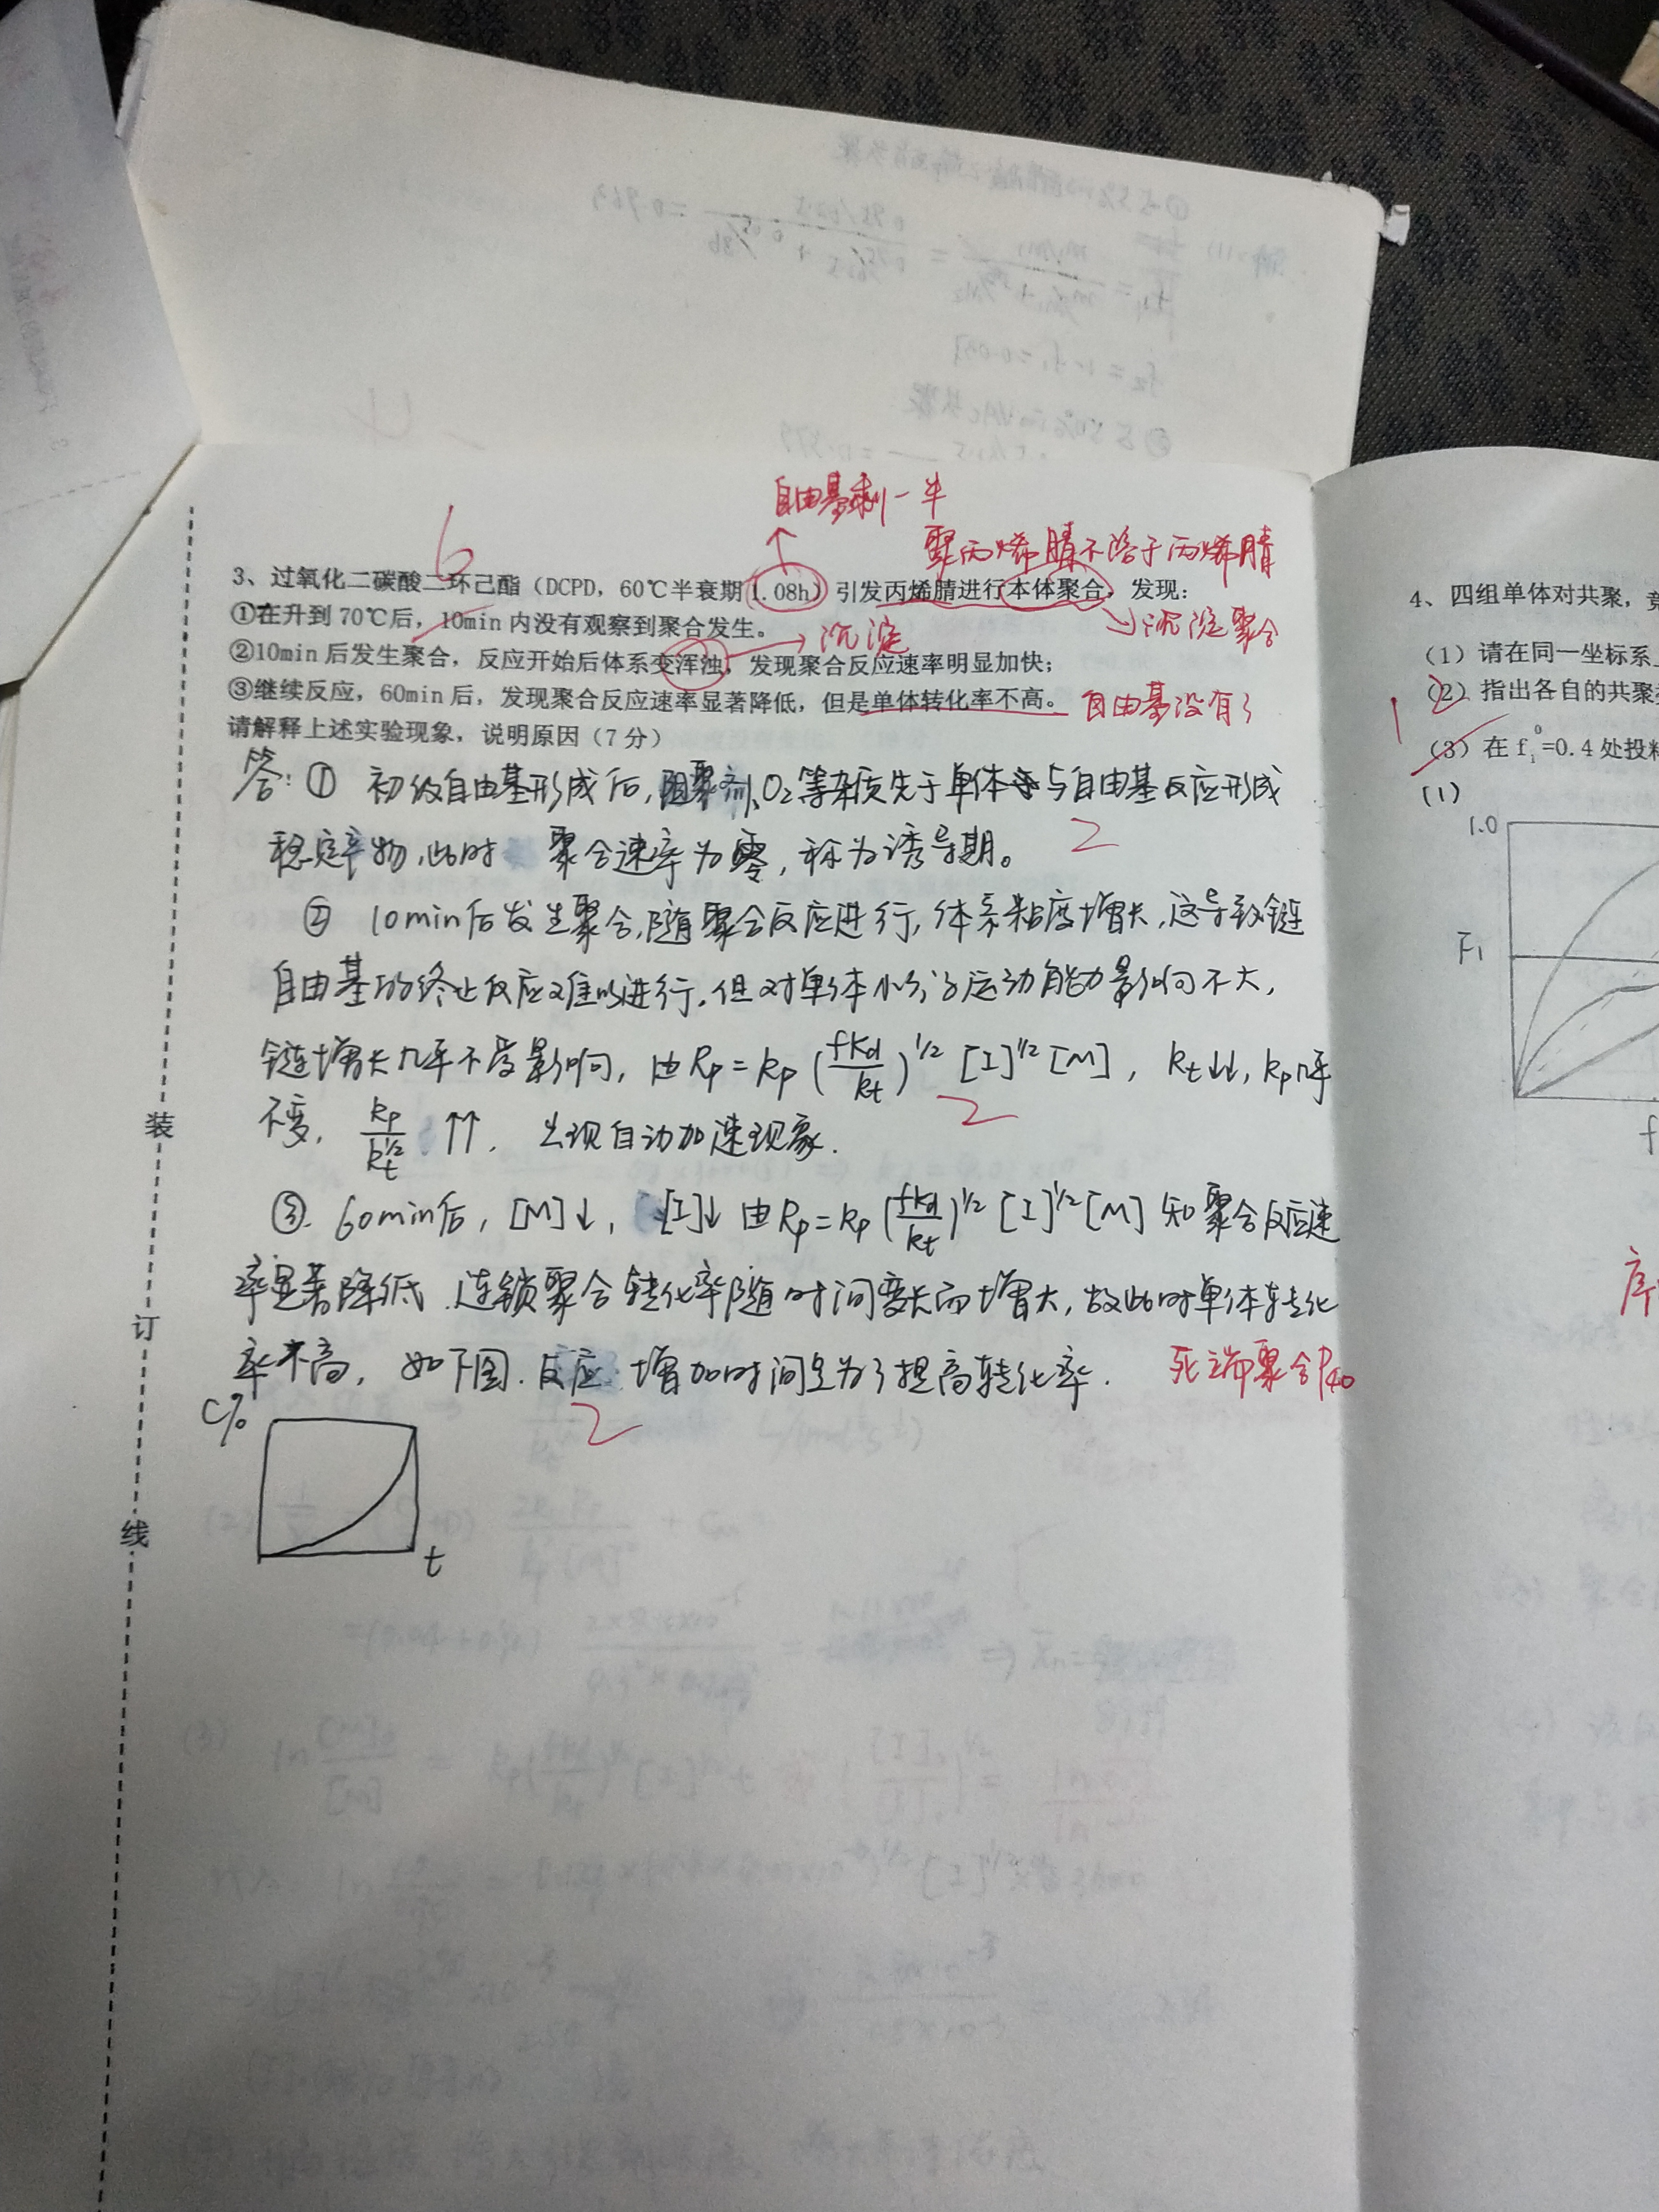 自由基剩一半
聚丙烯腈不溶于丙烯腈
6
3、过氧化二碳酸二环己酯（DCPD，60℃半衰期1.08h）引发丙烯腈进行本体聚合，发现：
沉淀聚合
①在升到70℃后，10min内没有观察到聚合发生。
沉淀
②10min后发生聚合，反应开始后体系变浑浊，发现聚合反应速率明显加快；
③继续反应，60min后，发现聚合反应速率显著降低，但是单体转化率不高。
自由基没有了
请解释上述实验现象，说明原因（7分）
答：① 初级自由基形成后，阻聚剂、O₂等杂质先于单体与自由基反应形成
稳定产物，此时 聚合速率为零，称为诱导期。
2
② 10min后发生聚合，随聚合反应进行，体系粘度增长，这导致链
自由基的终止反应难以进行。但对单体小分子运动能力影响不大，
链增长几乎不受影响，由Rp=kp(fkd/kt)^1/2 [I]^1/2 [M]，kt↓↓，kp几乎
不变，kp/kt^1/2 ↑↑，出现自动加速现象.
2
③. 60min后，[M]↓，[I]↓ 由Rp=kp(fkd/kt)^1/2 [I]^1/2 [M] 知聚合反应速
率显著降低．连锁聚合转化率随时间变长而增大，故此时单体转化
率不高，如下图．反应增加时间是为了提高转化率．
死端聚合P40
2
C%
t
装
订
线
4、四组单体对共聚，
（1）请在同一坐标系
（2）指出各自的共聚
1
（3）在f₁⁰=0.4处投料
（1）
1.0
F1
f
序